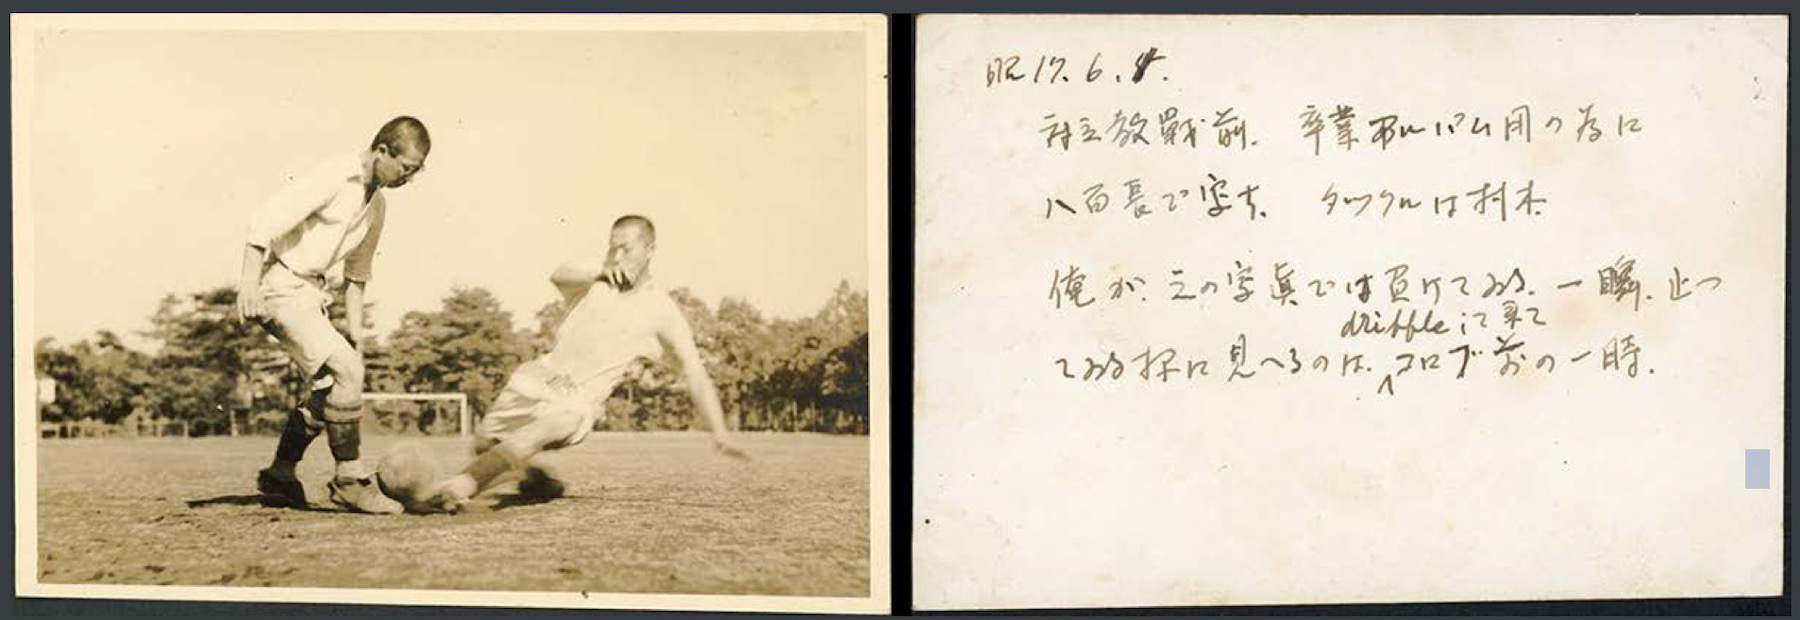 昭17.6.
対立教戰前. 卒業アルバム用の為に
八百長で写す. タックルは村木
俺が、この写眞では負けてゐる. 一瞬. 止つ
dribbleして来て
てゐる様に見へるのは. 前の一時.